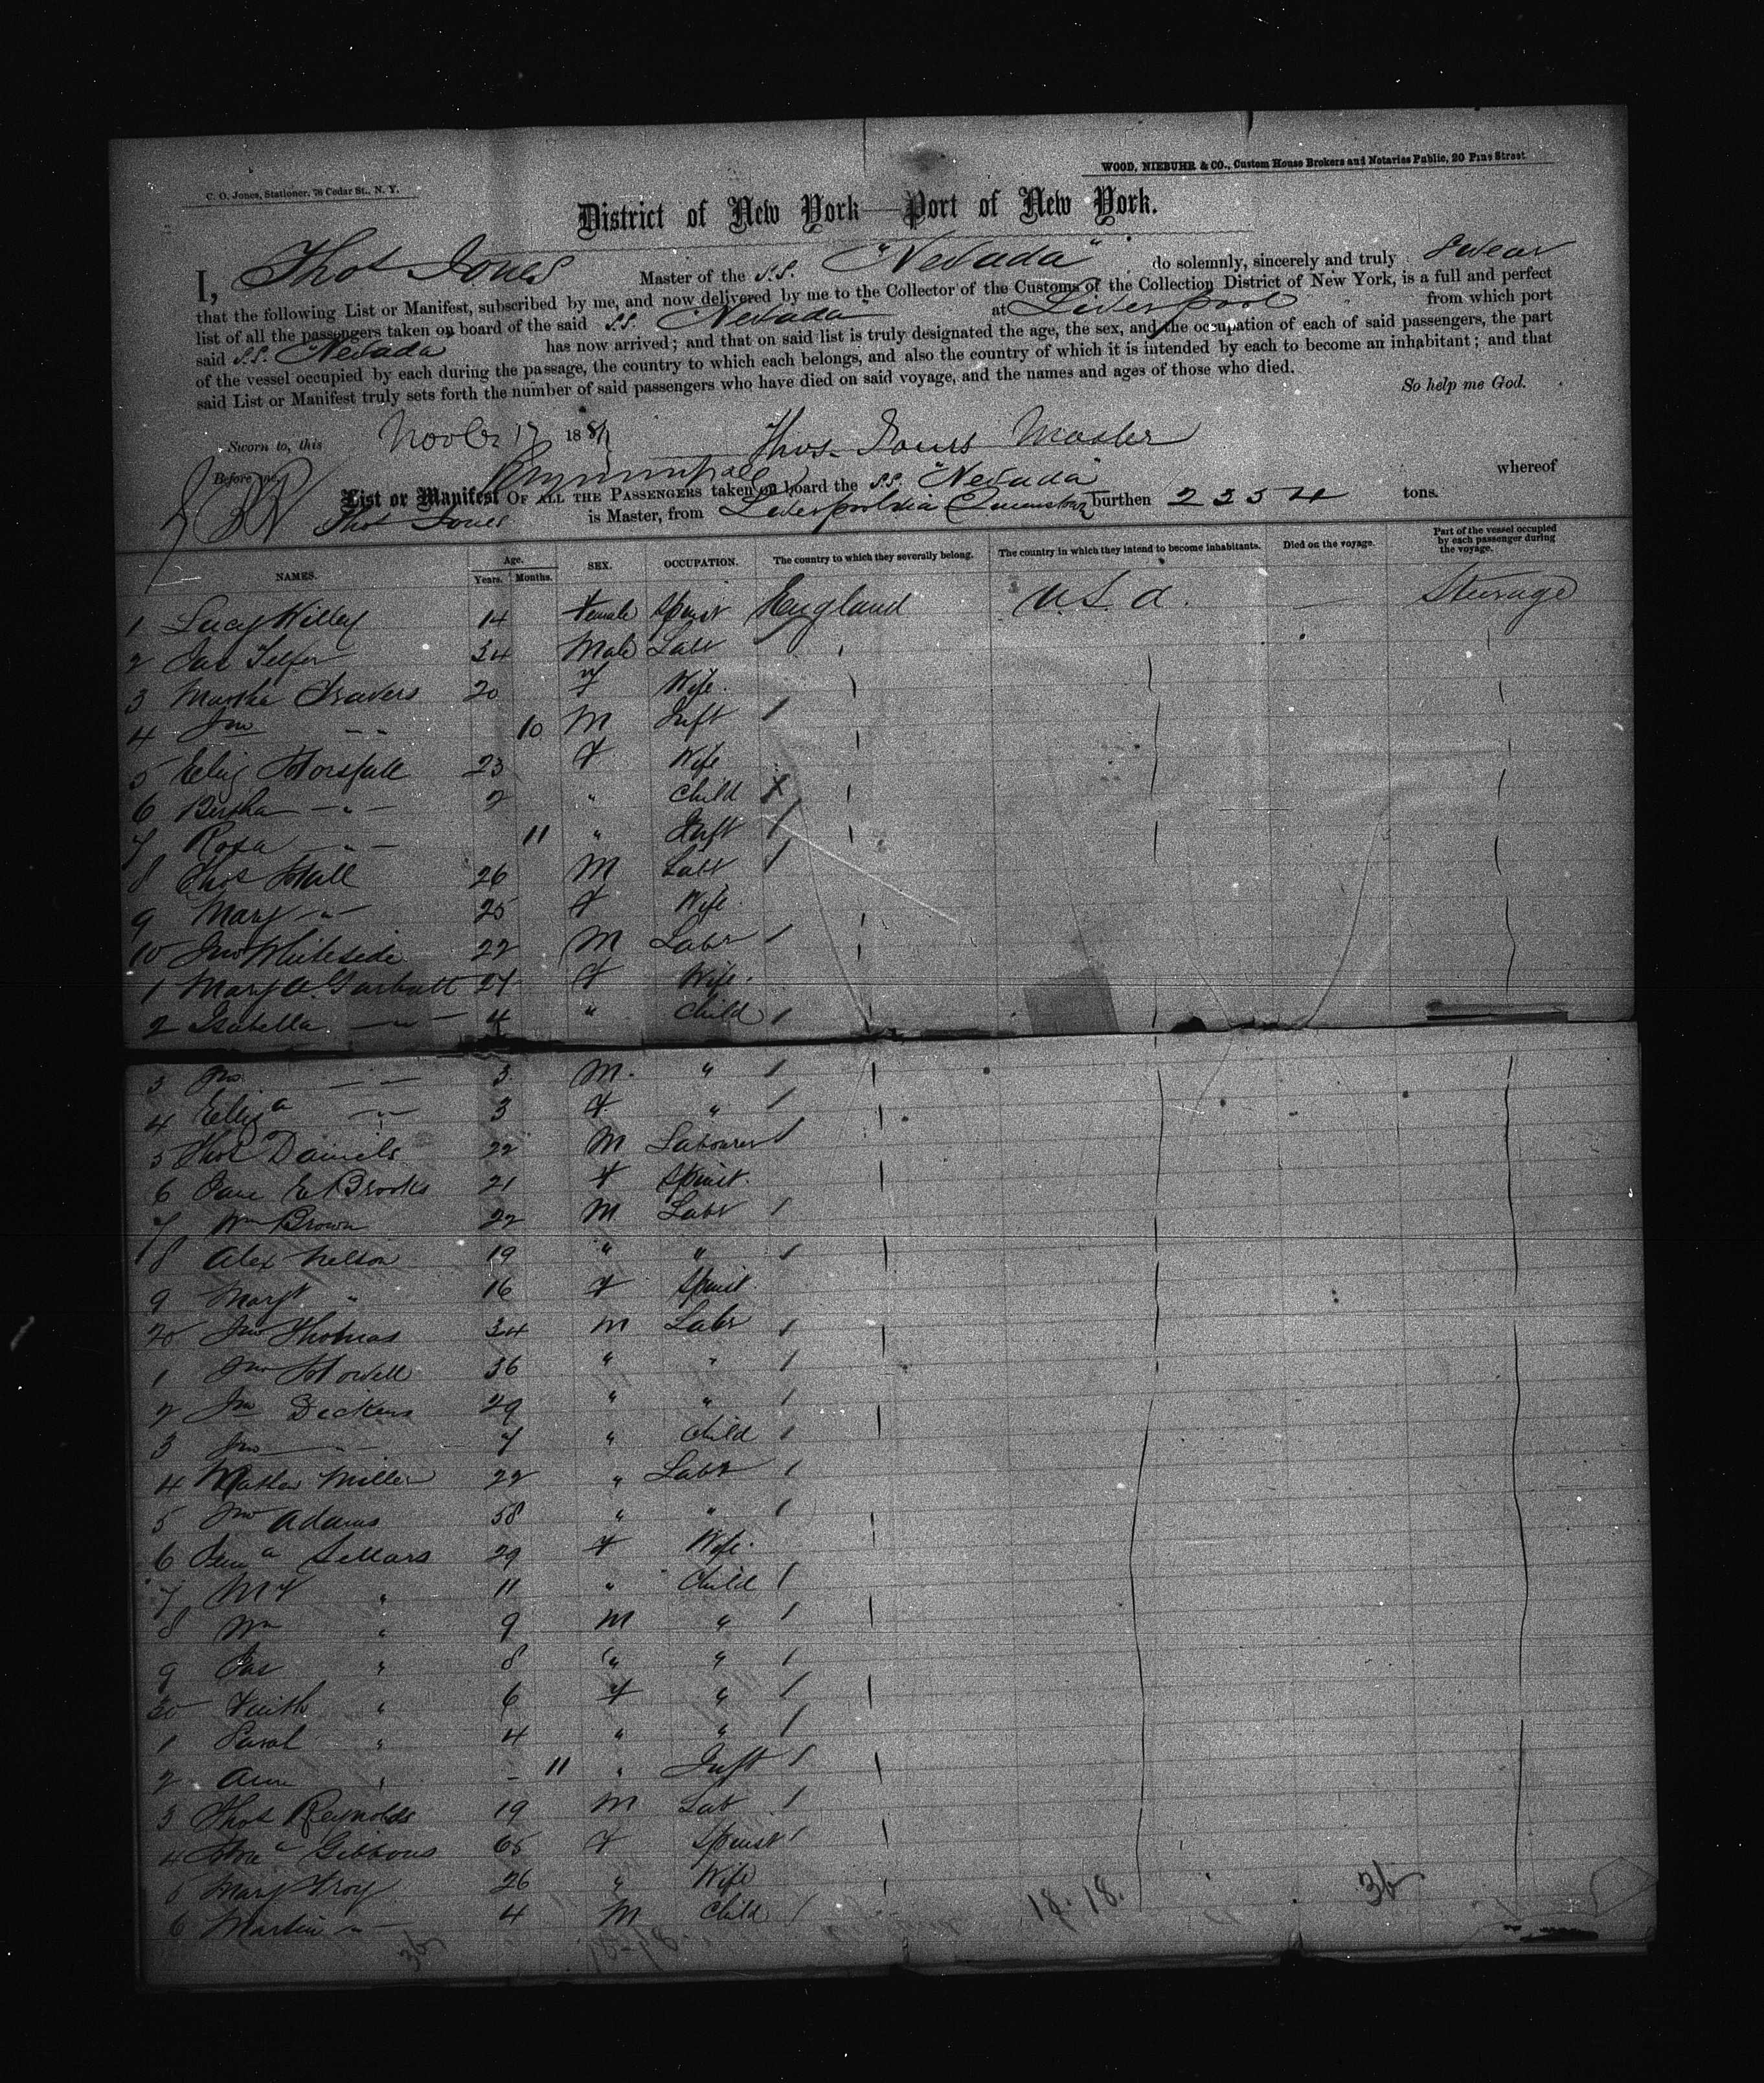 WOOD, NIEBUHR & CO., Custom House Brokers and Notaries Public, 20 Pine Street
C. O. Jones, Stationer, 76 Cedar St., N. Y.
District of New York—Port of New York.
I, Thos Jones Master of the S.S. "Nevada" do solemnly, sincerely and truly swear
that the following List or Manifest, subscribed by me, and now delivered by me to the Collector of the Customs of the Collection District of New York, is a full and perfect
list of all the passengers taken on board of the said S.S. Nevada at Liverpool from which port
said S.S. Nevada has now arrived; and that on said list is truly designated the age, the sex, and the occupation of each of said passengers, the part
of the vessel occupied by each during the passage, the country to which each belongs, and also the country of which it is intended by each to become an inhabitant; and that
said List or Manifest truly sets forth the number of said passengers who have died on said voyage, and the names and ages of those who died.
So help me God.
Sworn to, this Novbr 17 1881 Thos. Jones Master
Before me,
List or Manifest OF ALL THE PASSENGERS taken on board the S.S. "Nevada" whereof
Thos Jones is Master, from Liverpool via Queenstown burthen tons.
NAMES. Age. Years. Months. SEX. OCCUPATION. The country to which they severally belong. The country in which they intend to become inhabitants. Died on the voyage. Part of the vessel occupied by each passenger during the voyage.
1 Lucy Willey 14 Female Spinst England U.S.A. — Steerage
2 Jas Telfer 34 Male Labr
3 Martha Travers 20 F Wife
4 Jno " 10 M Inft
5 Eliz Horsfall 23 F Wife
6 Bertha — " — 2 " Child
7 Rosa — " — 11 " Inft
8 Thos Hall 26 M Labr
9 Mary — " — 25 F Wife
10 Jno Whiteside 22 M Labr
1 Mary A. Garbutt 27 F Wife
2 Isabella — " — 4 " Child
3 Jno — " — 3 M "
4 Eliza — " — 3 F "
5 Thos Daniels 22 M Labourer
6 Jane E Brooks 21 F Spinst
7 Wm Brown 22 M Labr
8 Alex Nelson 19 " "
9 Margt " 16 F Spinst
20 Jno Thomas 34 M Labr
1 Jno Howell 36 " "
2 Jno Dickens 29 " "
3 Jno — " — 7 " Child
4 Mathew Miller 22 " Labr
5 Jno Adams 58 " "
6 Sellars 29 F Wife
7 My " 11 " Child
8 Wm " 9 M "
9 Jas " 8 " "
30 Faith " 6 F "
1 Sarah " 4 " "
2 Ann " - 11 " Inft
3 Thos Reynolds 19 M Lab
4 Gibbons 65 F Spinst
5 Mary Troy 26 " Wife
6 Martin — " — 4 M Child
36 18-18. 18.18. 36